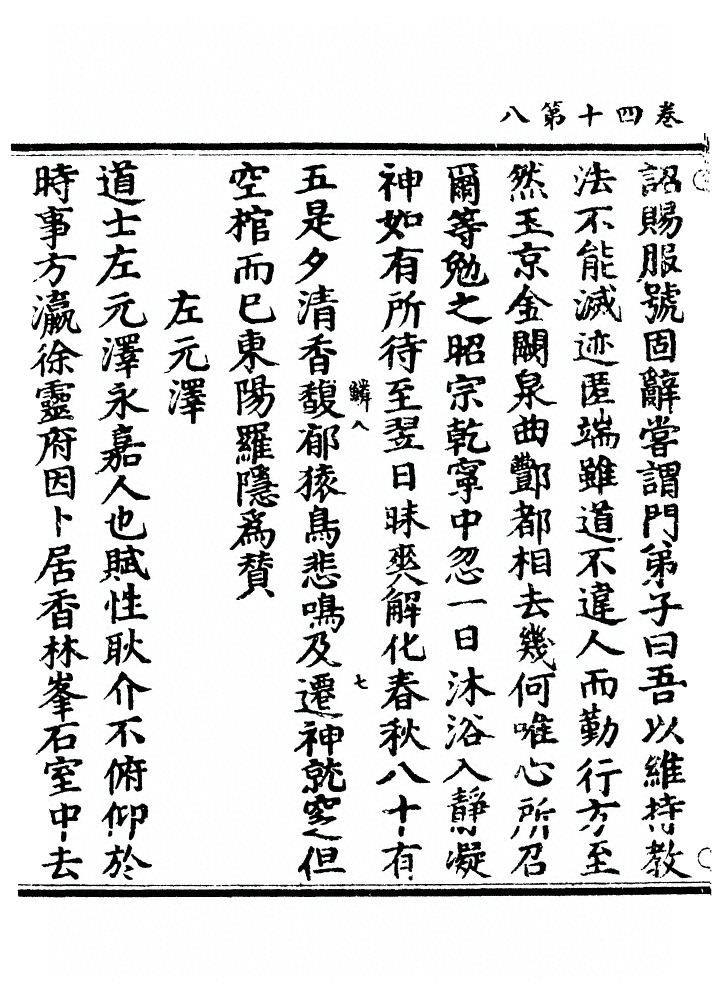 卷四十第八
詔賜服號固辭嘗謂門弟子曰吾以維持教
法不能滅迹匿端雖道不違人而勤行方至
然玉京金闕泉曲酆都相去幾何唯心所召
爾等勉之昭宗乾寧中忽一日沐浴入靜凝
神如有所待至翌日昧爽解化春秋八十有
鱗八 七
五是夕清香馥郁猿鳥悲鳴及遷神就窆但
空棺而已東陽羅隱爲贊
左元澤
道士左元澤永嘉人也賦性耿介不俯仰於
時事方瀛徐靈府因卜居香林峯石室中去